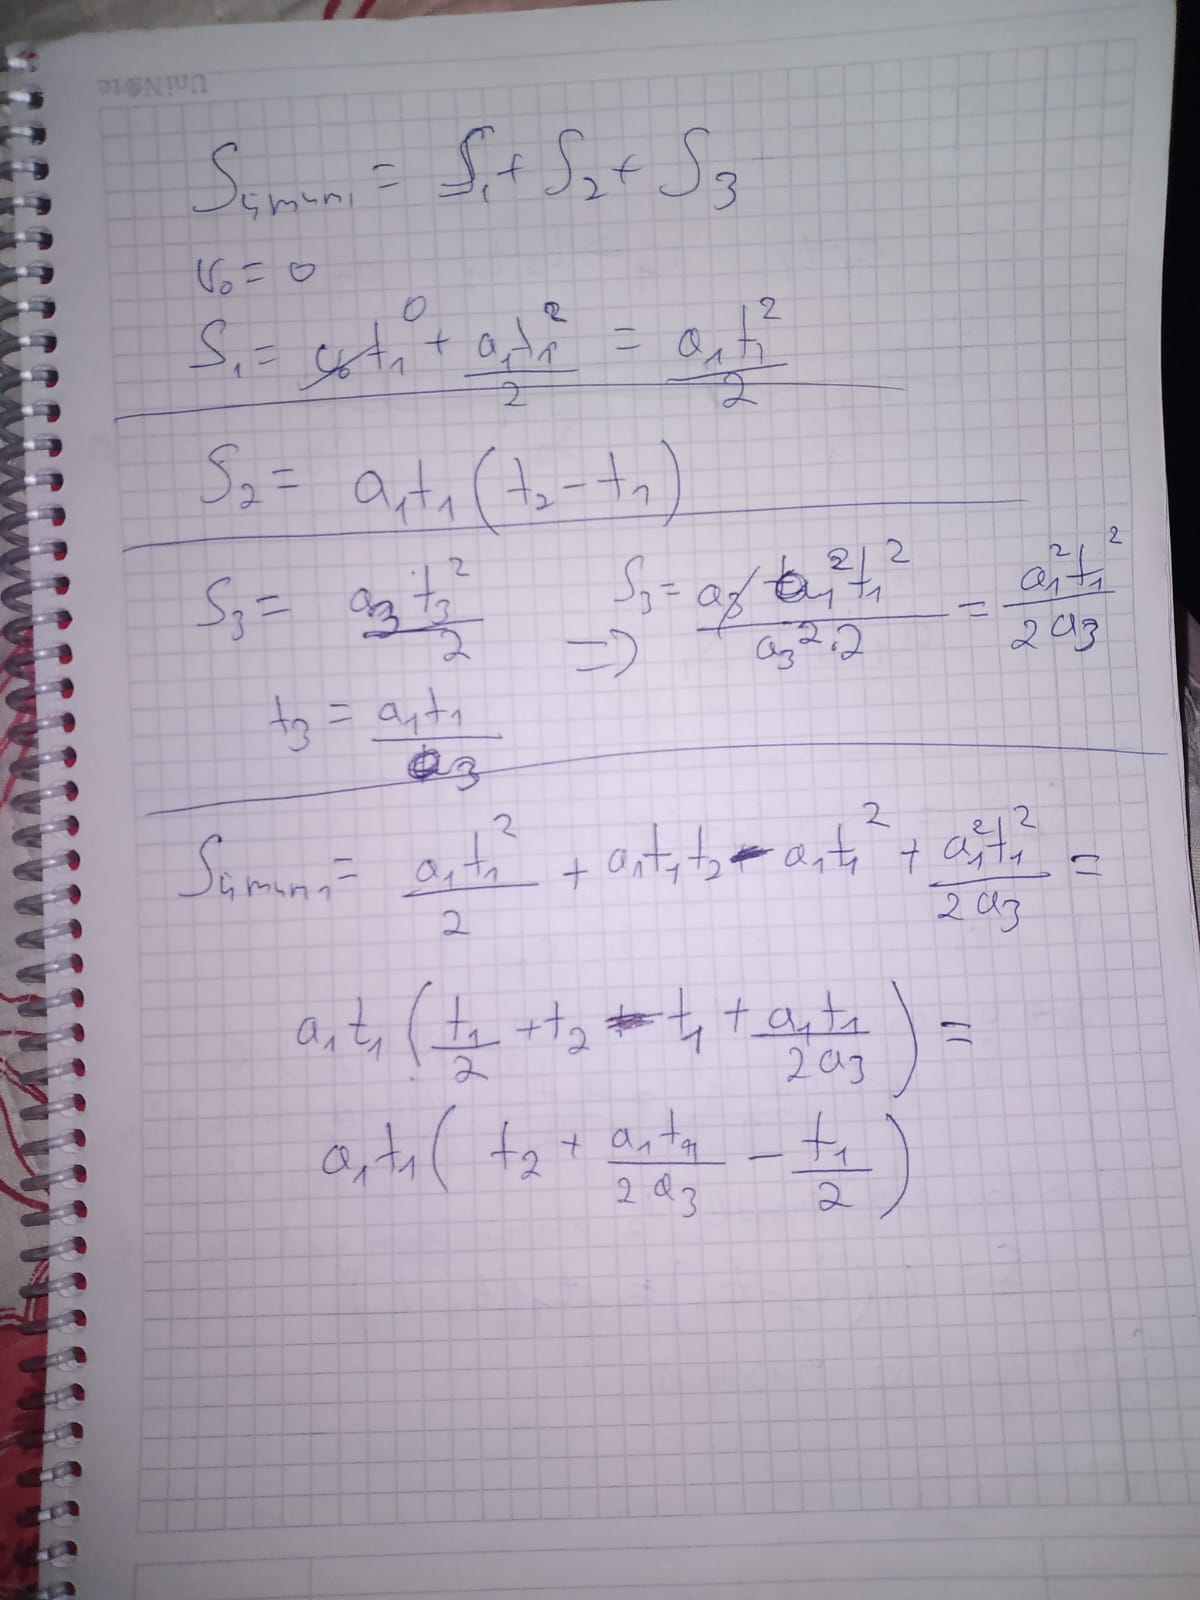 UniNote
Sümumi = S₁ + S₂ + S₃
v₀ = 0
S₁ = v₀t₁⁰ + a₁t₁²/2 = a₁t₁²/2
S₂ = a₁t₁(t₂ - t₁)
S₃ = a₃t₃²/2 => S₃ = a₃a₁²t₁²/a₃²·2 = a₁²t₁²/2a₃
t₃ = a₁t₁/a₃
Sümumi = a₁t₁²/2 + a₁t₁t₂ - a₁t₁² + a₁²t₁²/2a₃ =
a₁t₁(t₁/2 + t₂ - t₁ + a₁t₁/2a₃) =
a₁t₁(t₂ + a₁t₁/2a₃ - t₁/2)